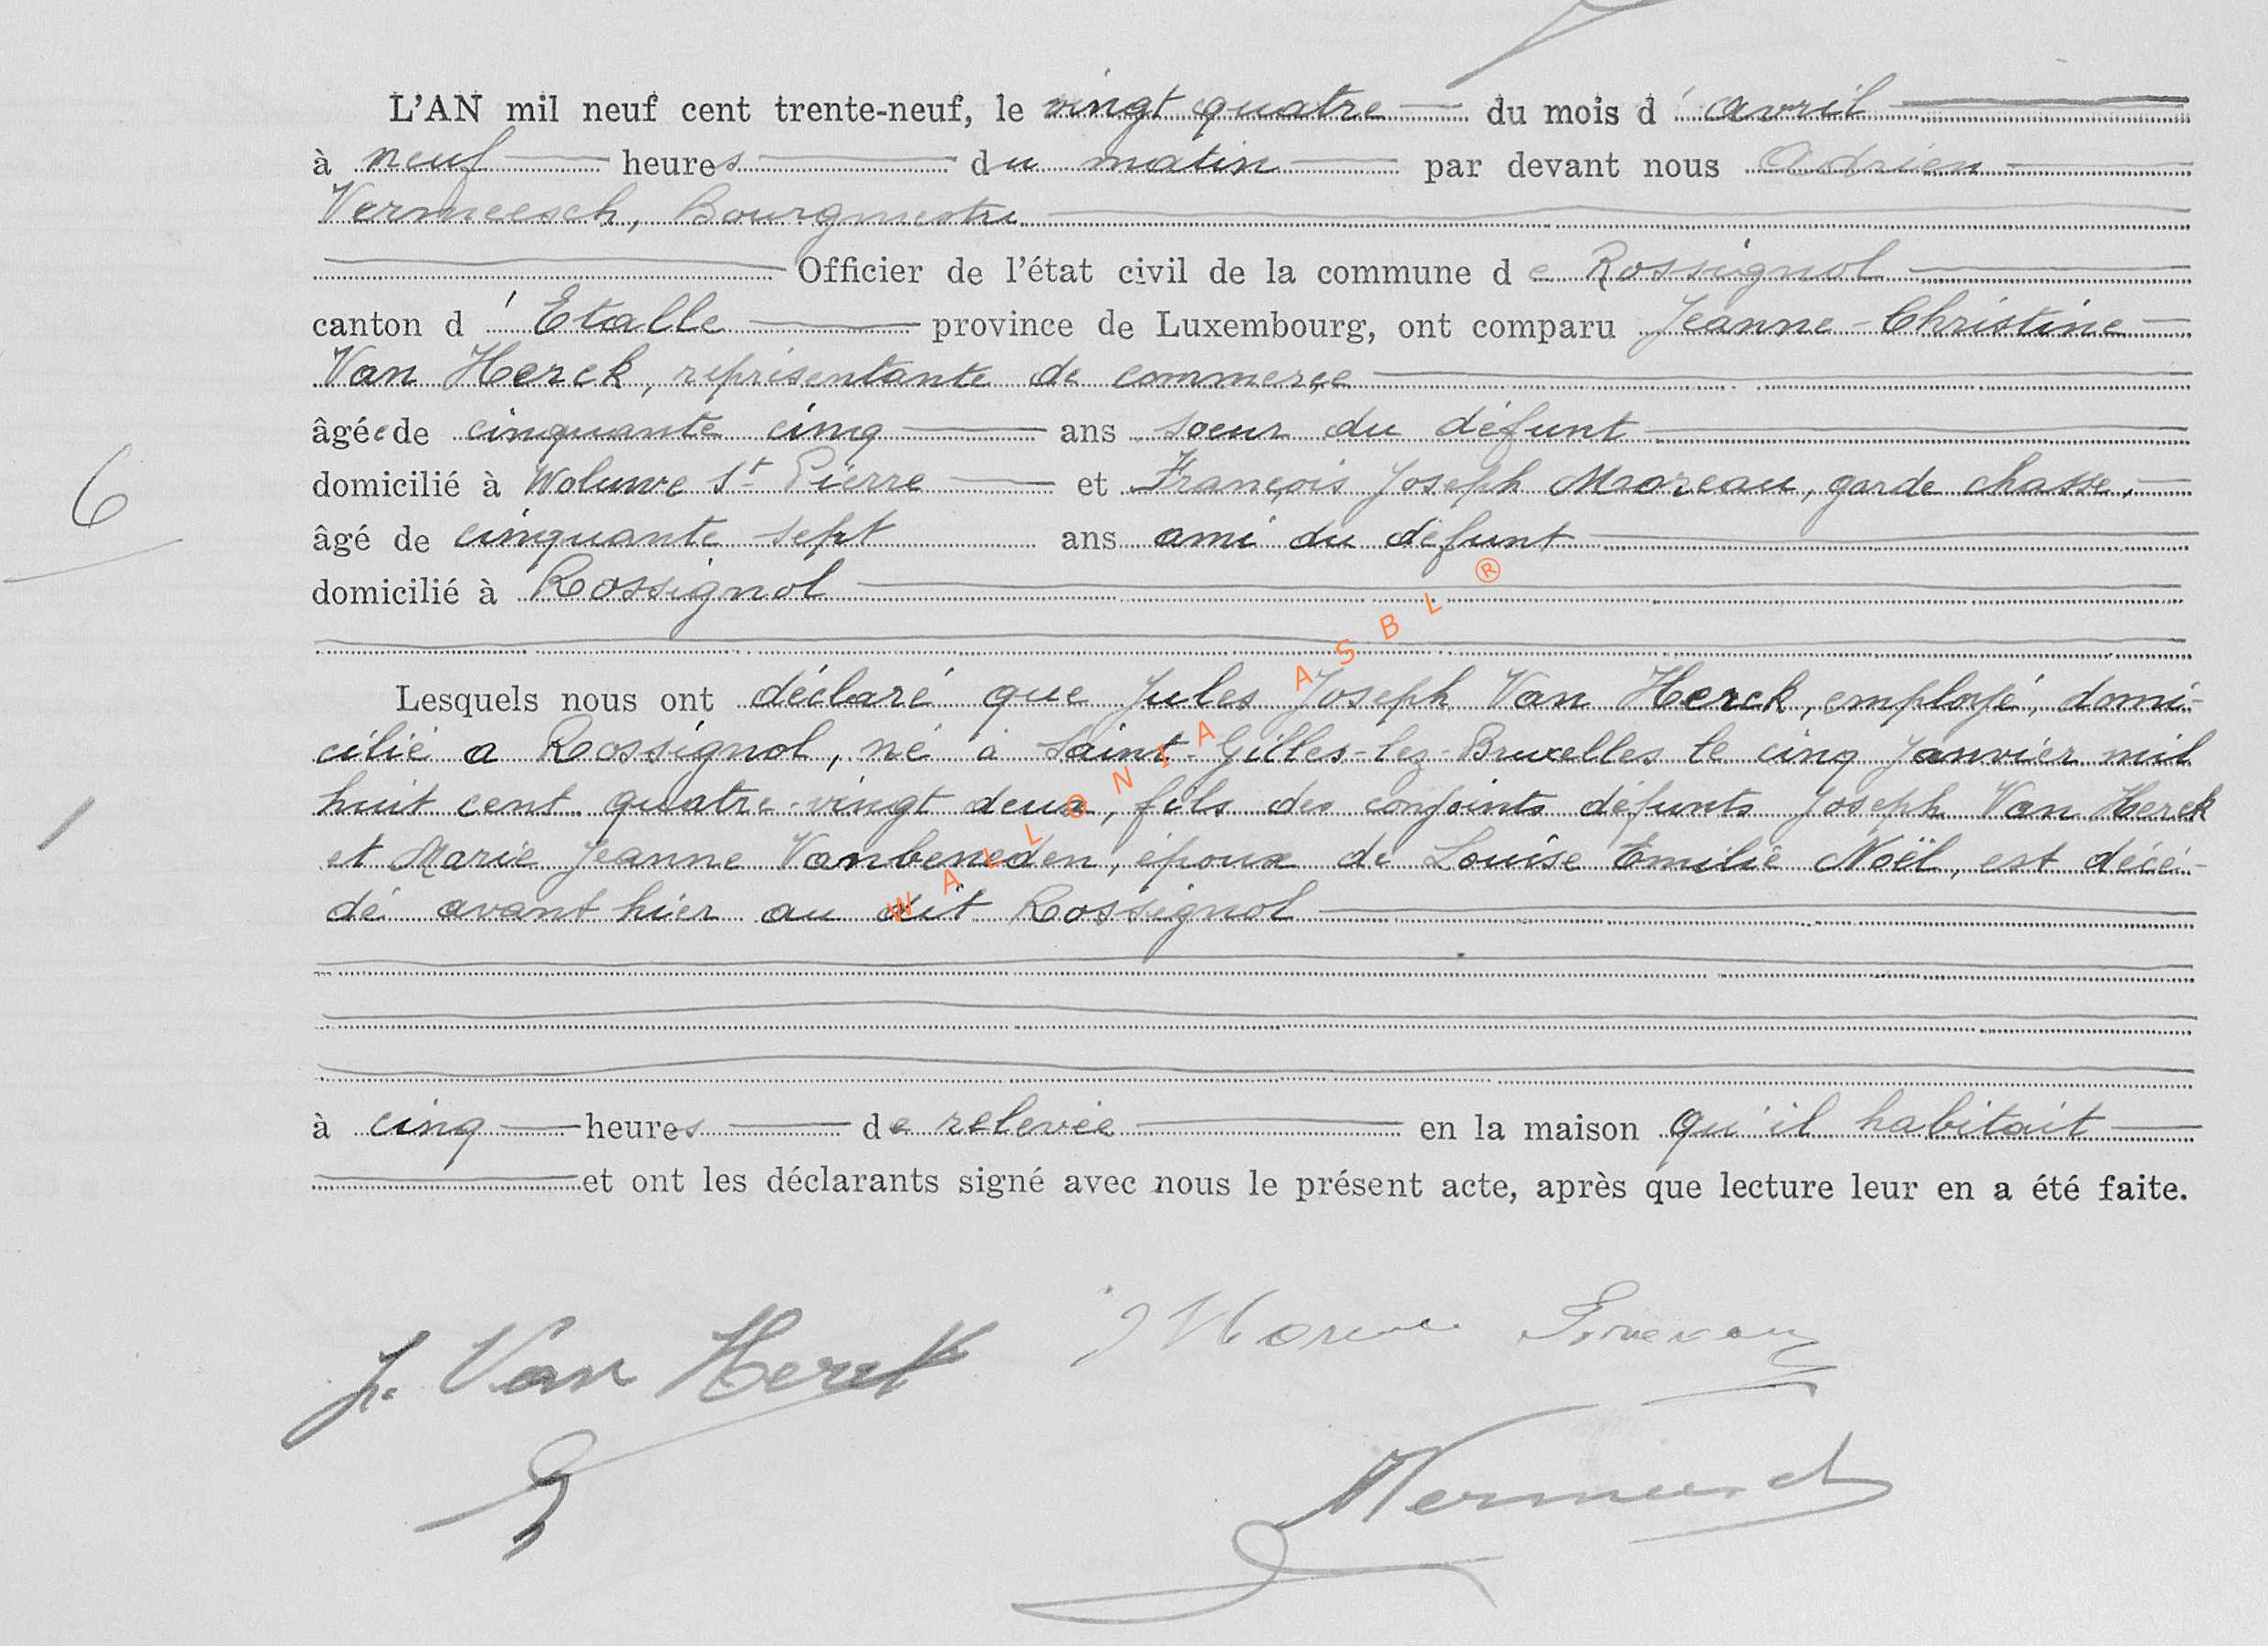 L'AN mil neuf cent trente-neuf, le vingt quatre du mois d'avril
à neuf heures du matin par devant nous Adrien
Vermeesch, Bourgmestre
Officier de l'état civil de la commune de Rossignol
canton d'Etalle province de Luxembourg, ont comparu Jeanne-Christine
Van Herck, représentante de commerce
âgée de cinquante cinq ans soeur du défunt
domicilié à Woluwe St Pierre et François Joseph Moreau, garde chasse,
6
âgé de cinquante sept ans ami du défunt
domicilié à Rossignol
Lesquels nous ont déclaré que Jules Joseph Van Herck, employé, domi-
cilié a Rossignol, né à Saint-Gilles-lez-Bruxelles le cinq Janvier mil
huit cent quatre-vingt deux, fils des conjoints défunts Joseph Van Herck
et Marie Jeanne Vanbeneden, époux de Louise Emilie Noël, est décé-
dé avant hier au dit Rossignol
WALLONIA ASBL ®
à cinq heures de relevée en la maison qu'il habitait
et ont les déclarants signé avec nous le présent acte, après que lecture leur en a été faite.
J. Van Herck
Vermeesch